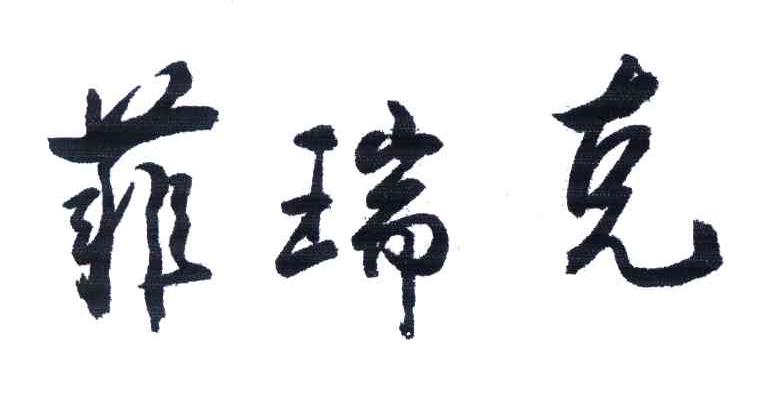 菲瑞克